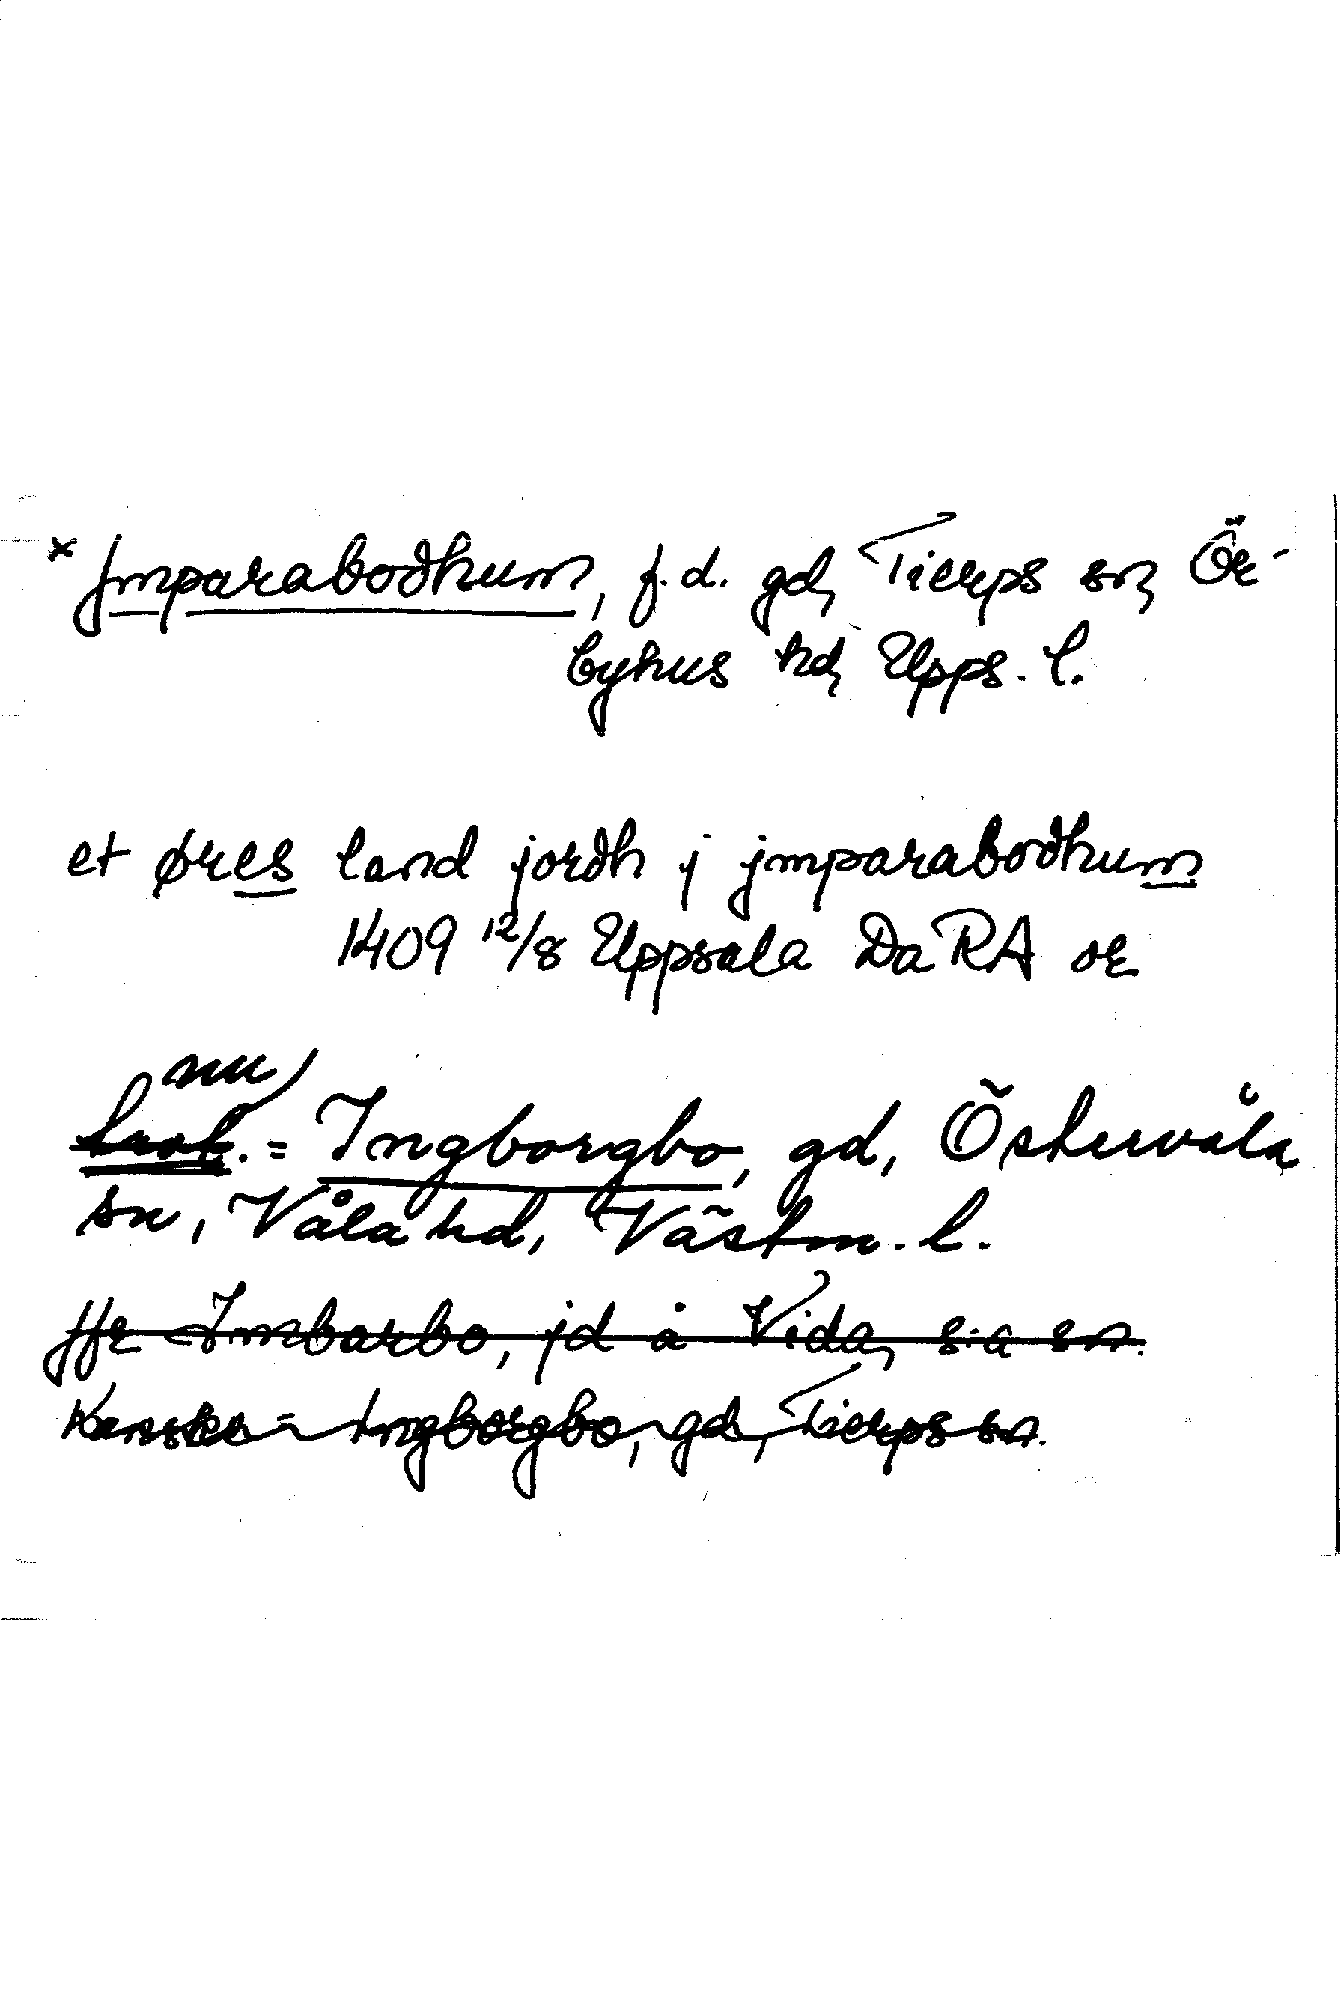 × Jmparabodhum, f.d. gd, Tierps sn, Ör-
byhus hd, Upps. l.
et øres land jordh j jmparabodhum
1409 12/8 Uppsala DaRA or
nu
= Ingborgbo, gd, Östervåla
sn, Våla hd, Västm. l.
Jfr Imbarbo, jd å Vida, s:a sn.
Kanske = Ingborgbo, gd, Tierps sn.